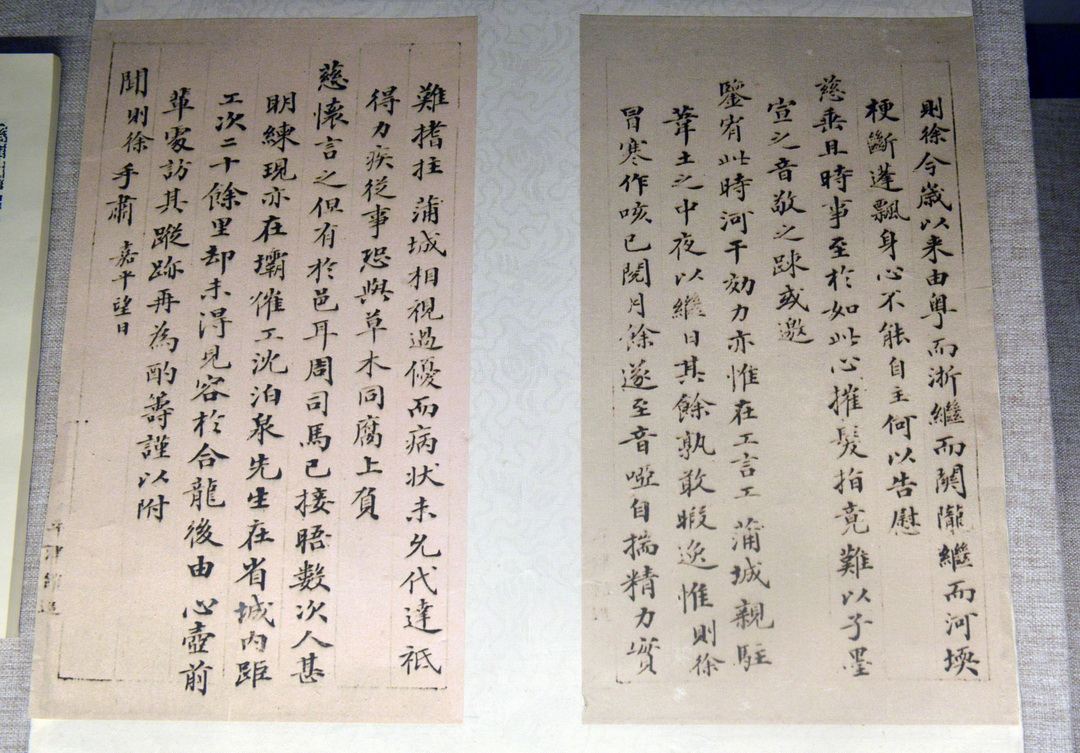 則徐今歲以来由粤而浙繼而關隴繼而河壖
梗斷蓬飄身心不能自主何以告慰
慈乘且時事至於如此心摧髮指竟難以子墨
宣之音敬之踈或邀
鑒宥此時河干効力亦惟在工言工蒲城親駐
葦土之中夜以繼日其餘孰敢暇逸惟則徐
冒寒作咳已閱月餘遂至音啞自揣精力實
難搘拄蒲城相視過優而病狀未允代達祇
得力疾從事恐與草木同腐上負
慈懷言之但有於邑耳周司馬已接晤數次人甚
明練現亦在壩催工沈泊泉先生在省城内距
工次二十餘里却未得見容於合龍後由心壺前
輩處訪其蹤跡再為酌籌謹以附
聞則徐手肅 嘉平望日
平津館